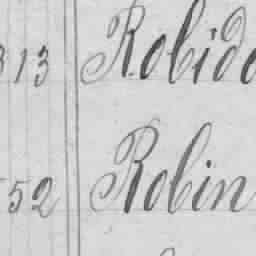 313 Robido
552 Robin